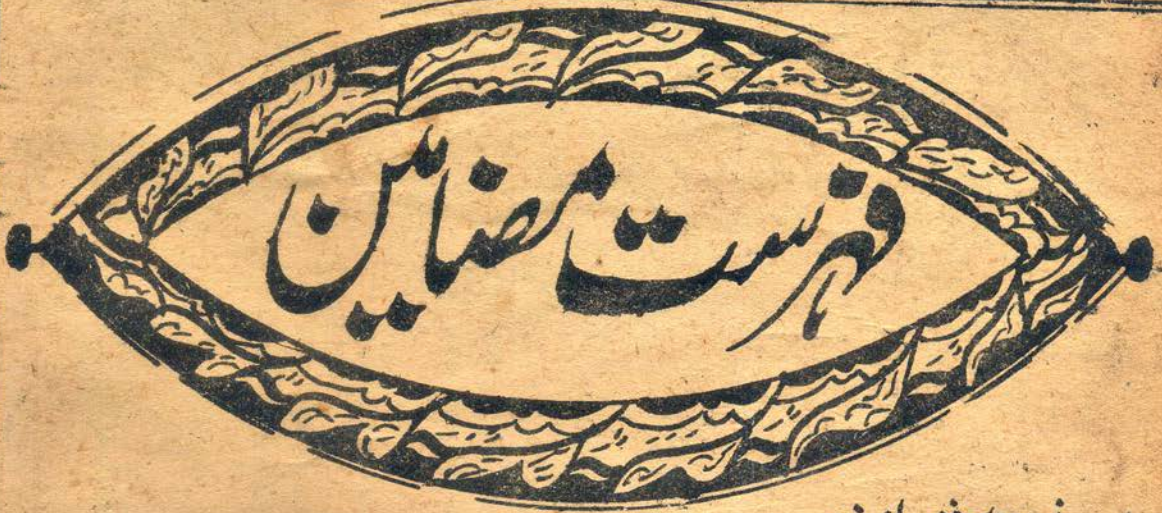 فہرست مضامین